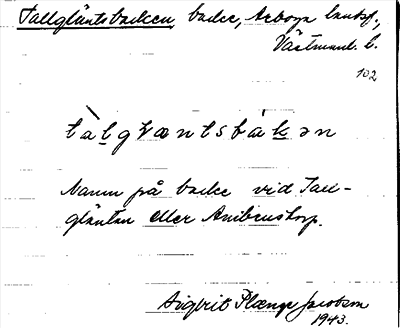 Tallgläntsbacken, backe, Arboga landsf.,
Västmanl. l.
102
tàlgläntsbákən
Namn på backe vid Tall-
gläntan eller
Sigbrit Plænge Jacobson
1943.